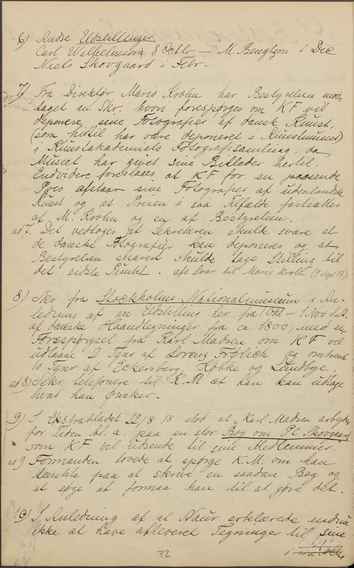 6) Andre Udstillinger
Carl Wilhelmson 8 Octbr. — M. Bengtson i Dec.
Niels Skovgaard i Febr.
7) Fra Direktør Mario Krohn har Bestyrelsen mod-
taget en Skr. hvori forespørges om KF vil
deponere sine Fotografier af dansk Kunst.
(som hidtil har være deponeret i Kunstmuseet)
i Kunstakademiets Fotografisamling, da
Museet har givet sine Billeder hertil.
Endvidere foreslaaes at KF for en passende
Pris afstaar sine Fotografier af udenlandsk
Kunst og at Prisen i saa Tilfælde fastsættes
af M. Krohn og en af Bestyrelsen.
ad 7. Det vedtoges at Sekretæren skulde svare at
de danske Fotografier kan deponeres og at
Bestyrelsen senere skulde tage Stilling til
det sidste Punkt.
8) Skr fra Stockholms Nationalmuseum i An-
ledning af en Udstilling der fra 1 Oct - 1 Nov.
af danske Haandtegninger fra ca 1800, med en
Forespørgsel fra Karl Madsen om KF vil
udlaane 2 Tegn af Lorens Frølich og omtrent
10 Tegn af Eckersberg, Købke og Lundbye.
ad 8) Sekr. telefonere til K.M at han kan udtage
hvad han ønsker.
9) I Ekstrabladet 22/8 18 stod at Karl Madsen arbejder
for Tiden bl. a. paa en stor Bog om P.C. Skovgaard
som KF vil udsende til sine Medlemmer.
ad 9 Formanden lovede at spørge K.M. om han
tænkte paa at skrive en saadan Bog og
at søge at formaa ham til at gøre det.
I Anledning af at Naur erklærede endnu
ikke at have afleveret Tegninger til sine
72